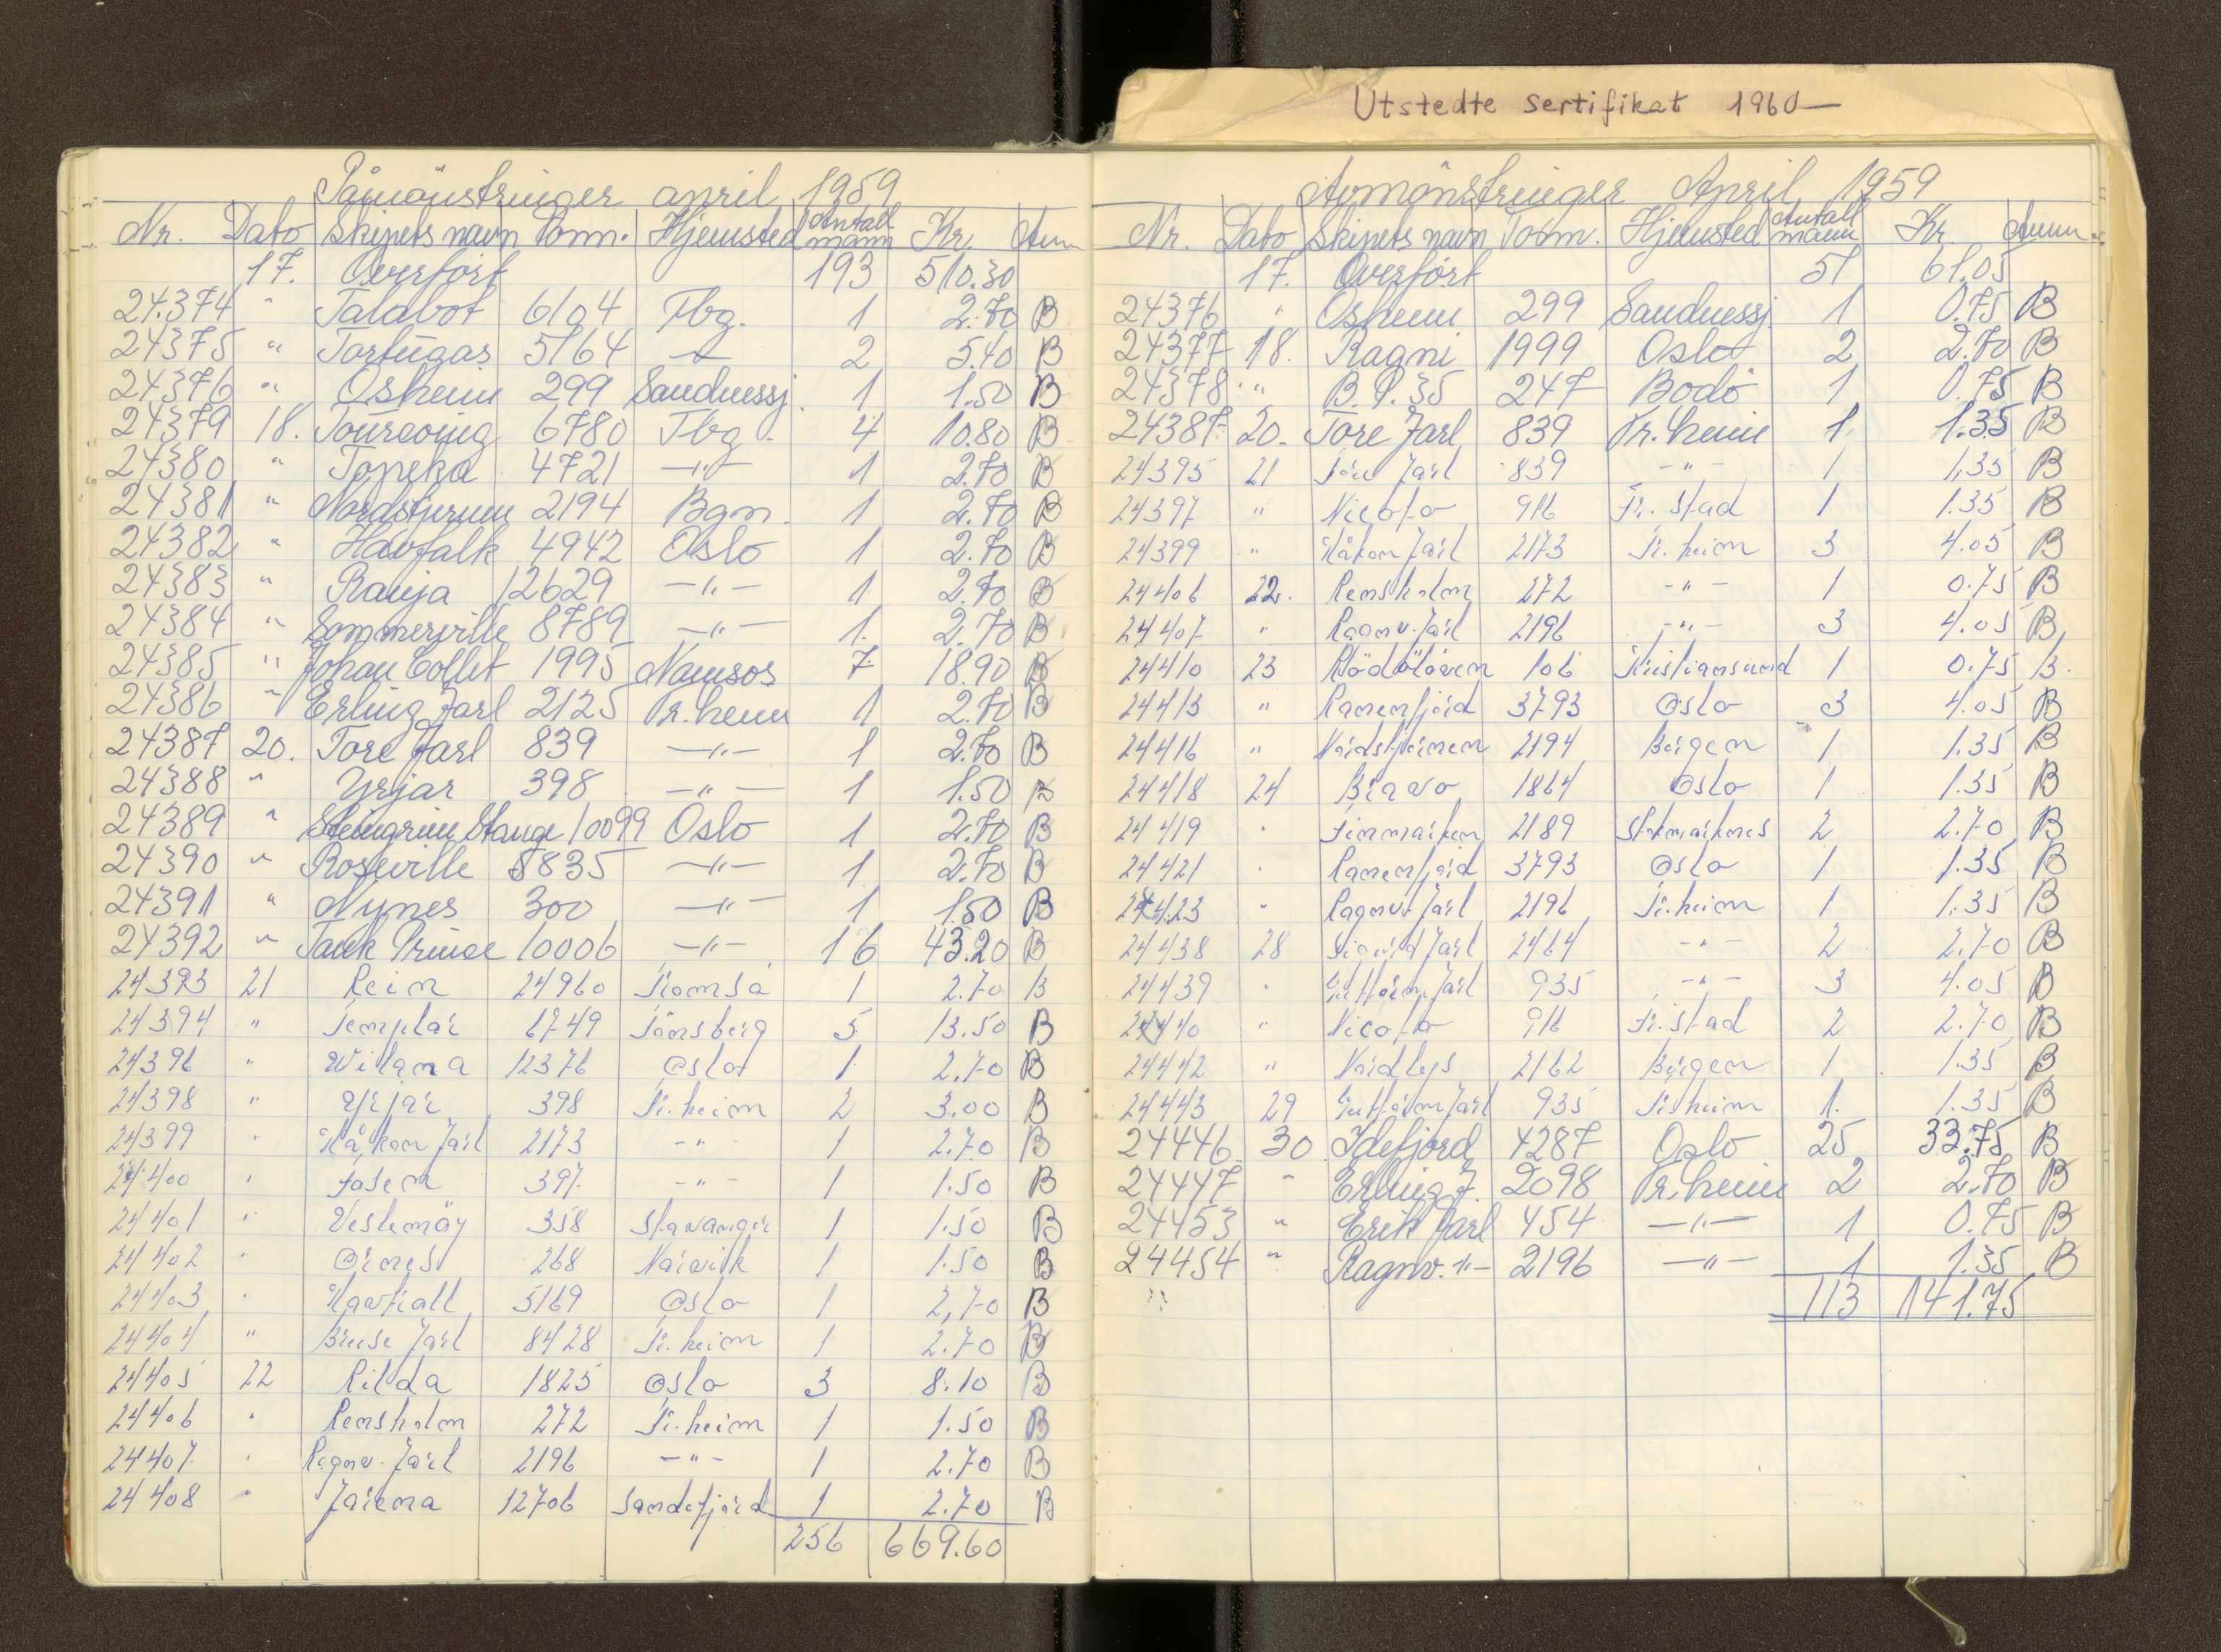 Utstedte sertifikat 1960—
Påmönstringer april 1959
Nr. Dato Skipets navn Tonn. Hjemsted Antall mann Kr. Anm
17. Overfört 193 510.30
24.374 " Talabot 6104 Tbg. 1 2.70 B
24375 " Tortugas 5164 —"— 2 5.40 B
24376 " Osheim 299 Sandnessj. 1 1.50 B
24379 18. Tourcoing 6780 Tbg. 4 10.80 B
24380 " Topeka 4721 —"— 1 2.70 B
24381 " Nordstjernen 2194 Bgn. 1 2.70 B
24382 " Havfalk 4942 Oslo 1 2.70 B
24383 " Ranja 12629 —"— 1 2.70 B
24384 " Sommerville 8789 —"— 1. 2.70 B
24385 " Johan Collet 1995 Namsos 7 18.90 B
24386 " Erling Jarl 2125 Tr.heim 1 2.70 B
24387 20. Tore Jarl 839 —"— 1 2.70 B
24388 " Yrjar 398 —"— 1 1.50 B
24389 " Steingrim Stange 10099 Oslo 1 2.70 B
24390 " Roseville 8835 —"— 1 2.70 B
24391 " Nynes 300 —"— 1 1.50 B
24392 " Tank Prince 10006 —"— 16 43.20 B
24393 21 Rein 24960 Tromsø 1 2.70 B
24394 " Templar 6749 Tönsberg 5 13.50 B
24396 " Wilana 12376 Oslo 1 2.70 B
24398 " Yrjar 398 Tr.heim 2 3.00 B
24399 " Håkon Jarl 2173 -"- 1 2.70 B
24400 " Fosen 397 -"- 1 1.50 B
24401 " Veslemöy 358 Stavanger 1 1.50 B
24402 " Ornes 268 Narvik 1 1.50 B
24403 " Havfjall 5169 Oslo 1 2,70 B
24404 " Bruse Jarl 8428 Tr.heim 1 2.70 B
24405 22 Rilda 1825 Oslo 3 8.10 B
24406 " Rensholm 272 Tr.heim 1 1.50 B
24407 " Ragnv. Jarl 2196 -"- 1 2.70 B
24408 " Jarena 12706 Sandefjord 1 2.70 B
256 669.60
Avmönstringer April 1959
Nr. Dato Skipets navn Tonn. Hjemsted Antall mann Kr. Anm.
17. Overfört 51 61.05
24376 " Osheim 299 Sandnessj. 1 0.75 B
24377 18. Ragni 1999 Oslo 2 2.70 B
24378 " B.P.35 247 Bodö 1 0.75 B
24387 20. Tore Jarl 839 Tr.heim 1 1.35 B
24395 21 Tore Jarl 839 -"- 1 1,35 B
24397 " Nicoto 916 Fr.stad 1 1.35 B
24399 " Håkon Jarl 2173 Tr.heim 3 4.05 B
24406 22. Rensholm 272 -"- 1 0.75 B
24407 " Ragnv. Jarl 2196 -"- 3 4.05 B
24410 23 106 Kristiansund 1 0.75 B.
24413 " Ranenfjord 3793 Oslo 3 4.05 B
24416 " Nordstjernen 2194 Bergen 1 1.35 B
24418 24 Bravo 1864 Oslo 1 1.35 B
24419 " Finmarken 2189 Stokmarknes 2 2.70 B
24421 " Ranenfjord 3793 Oslo 1 1.35 B
24423 " Ragnv. Jarl 2196 Tr.heim 1 1.35 B
24438 28 Sigurd Jarl 2464 -"- 2 2.70 B
24439 " Guttorm Jarl 935 -"- 3 4.05 B
24440 " Nicoto 916 Fr.stad 2 2.70 B
24442 " Nordlys 2162 Bergen 1 1.35 B
24443 29 Guttorm Jarl 935 Tr.heim 1. 1.35 B
24446 30 Idefjord 4287 Oslo 25 33.75 B
24447 " Erling J. 2098 Tr.heim 2 2.70 B
24453 " Erik Jarl 454 —"— 1 0.75 B
24454 " Ragnv. "— 2196 —"— 1 1.35 B
113 141.75